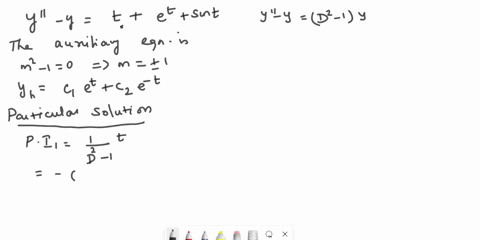 y'' - y = t + e^t + sint
y'' - y = (D² - 1) y
The auxiliary eqn. is
m² - 1 = 0 ⇒ m = ± 1
y_h = c₁ e^t + c₂ e^-t
Particular solution
P.I₁ = 1/(D² - 1) t
= - (